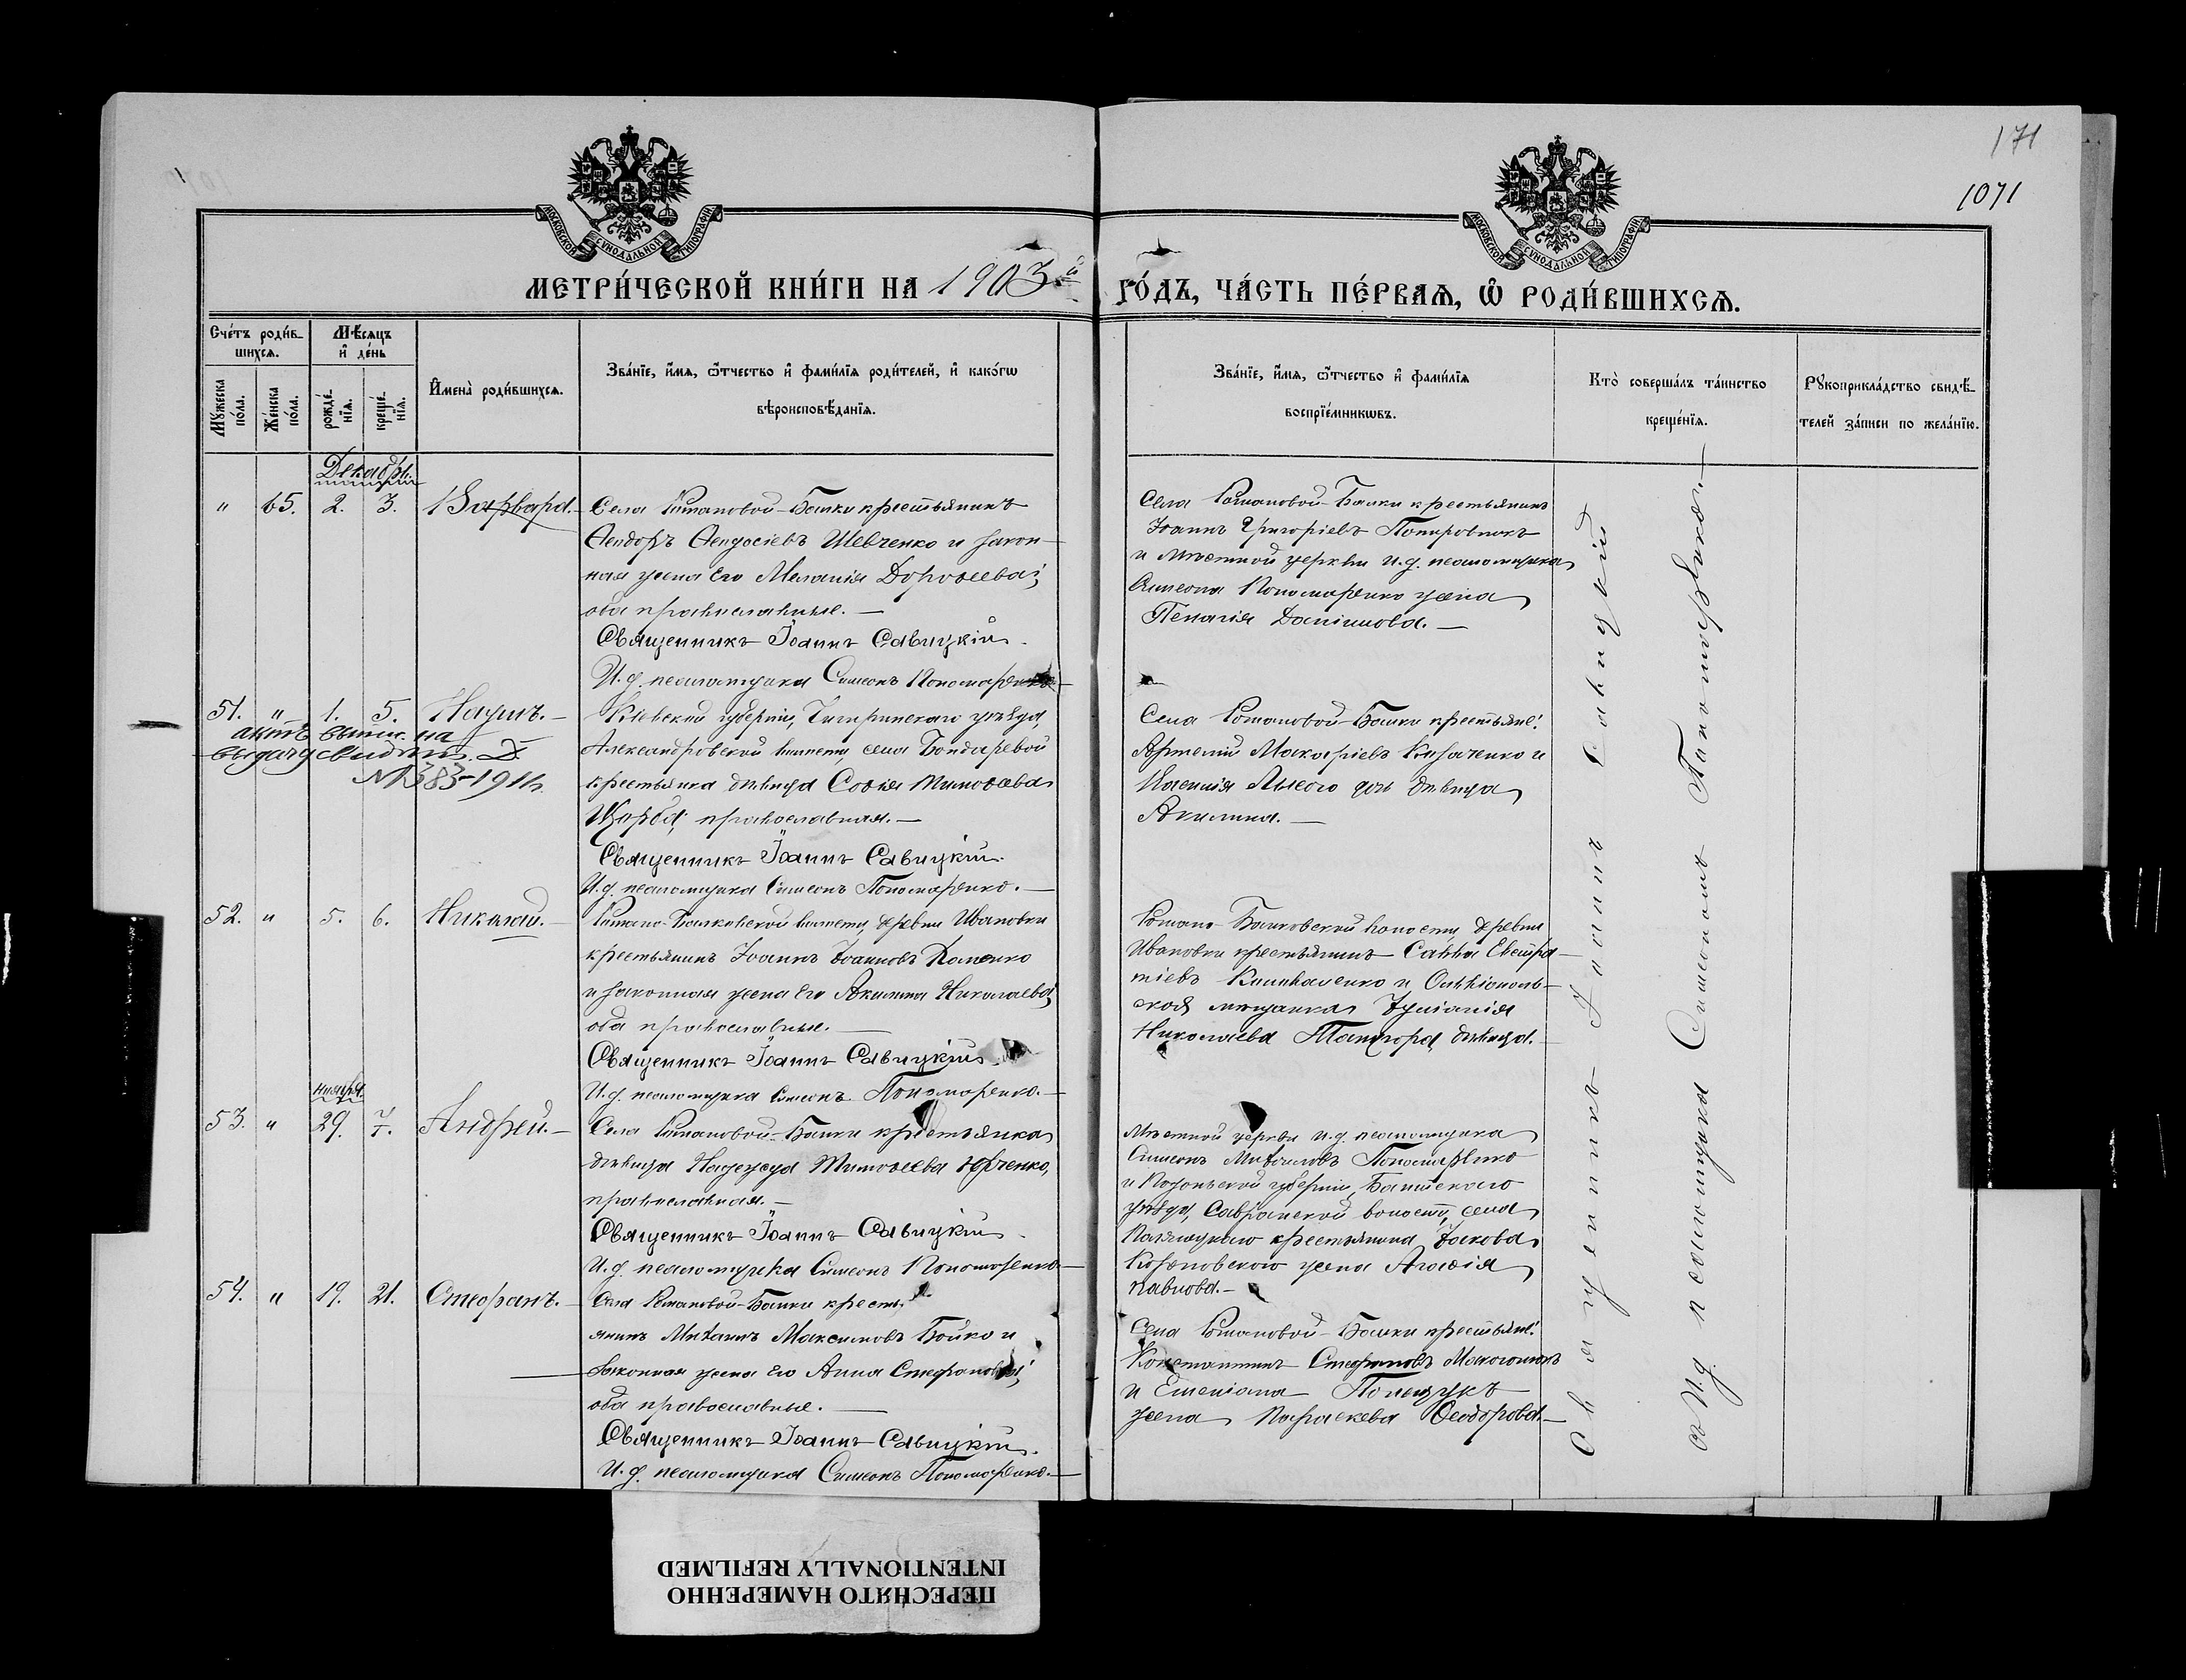 171
1071
МОСКОВСКОЙ СѴНОДАЛЬНОЙ ТИПОГРАФІИ
МОСКОВСКОЙ СѴНОДАЛЬНОЙ ТИПОГРАФІИ
МЕТРИ́ЧЕСКОЙ КНИ́ГИ НА 1903й ГО́ДЪ, ЧА́СТЬ ПЕ́РВАѦ, Ѡ҆ РОДИ́ВШИХСѦ.
Сче́тъ роди́в-
шихсѧ.
Мѣ́сѧцъ
и҆ де́нь
Мꙋ́жеска
по́ла.
Же́нска
по́ла.
рожде́-
нїѧ.
креще́-
нїѧ.
И҆мена̀ роди́вшихсѧ.
Зва́нїе, и҆́мѧ, ѻ҆́тчество и҆ фами́лїѧ роди́телей, и҆ како́гѡ
вѣроисповѣ́данїѧ.
Зва́нїе, и҆́мѧ, ѻ҆́тчество и҆ фами́лїѧ
воспрїе́мникѡвъ.
Кто̀ соверша́лъ та́инство
креще́нїѧ.
Рꙋкоприкла́дство свидѣ́-
телей за́писи по жела́нїю.
Декабрь.
" 65. 2. 3. Варвара.
Села Романовой-Балки крестьянинъ
Ѳеодоръ Ѳеодосіевъ Шевченко и закон-
ная жена его Меланія Дороѳеева;
оба православные.
Священникъ Іоаннъ Савицкій.
И. д. псаломщика Симеонъ Пономаренко
Села Романовой-Балки крестьянинъ
Іоаннъ Григоріевъ
и мѣстной церкви и. д. псаломщика
Симеона Пономаренко жена
Пелагія Даніилова.
51. " 1. 5. Наумъ.
актъ выпис. на
выдачу свидѣт.
№ 383-1911г.
Кіевской губерніи, Чигиринскаго уѣзда,
Александровской волости, села Бондаревой
крестьянка дѣвица Софія Тимоѳеева
Щерба, православная.
Священникъ Іоаннъ Савицкій.
И. д. псаломщика Симеонъ Пономаренко.
Села Романовой-Балки крестьяне:
Артемій Макаріевъ и
Лысаго дочь дѣвица
Акилина.
52. " 5. 6. Николай.
Романо-Балковской волости, деревни Ивановки
крестьянинъ Іоаннъ Іоанновъ
и законная жена его Акилина Николаева;
оба православные.
Священникъ Іоаннъ Савицкій
И. д. псаломщика Симеонъ Пономаренко.
Романо-Балковской волости, деревни
Ивановки крестьянинъ Савва Евстра-
тіевъ и Оливіополь-
ская мѣщанка Іуліанія
Николаева дѣвица.
ноября
53. " 29. 7. Андрей.
Села Романовой-Балки крестьянка
дѣвица Надежда Тимоѳеева Юрченко,
православная.
Священникъ Іоаннъ Савицкій
И. д. псаломщика Симеонъ Пономаренко
Мѣстной церкви и. д. псаломщика
Симеонъ Михаиловъ Пономаренко
и Подольской губерніи, Балтскаго
уѣзда, Савранской волости, села
крестьянина Іакова
жена Агафія
Павлова.
54. " 19. 21. Стефанъ.
Села Романовой-Балки кресть-
янинъ Михаилъ Максимовъ Бойко и
законная жена его Анна Стефанова;
оба православные.
Священникъ Іоаннъ Савицкій.
И. д. псаломщика Симеонъ Пономаренко.
Села Романовой-Балки крестьяне:
Константинъ Стефановъ
и Емеліана Полещукъ
жена Параскева Ѳеодорова.
Священникъ Іоаннъ Савицкій
И. д. псаломщика Симеонъ Пономаренко.
ПЕРЕСНЯТО НАМЕРЕННО
INTENTIONALLY REFILMED